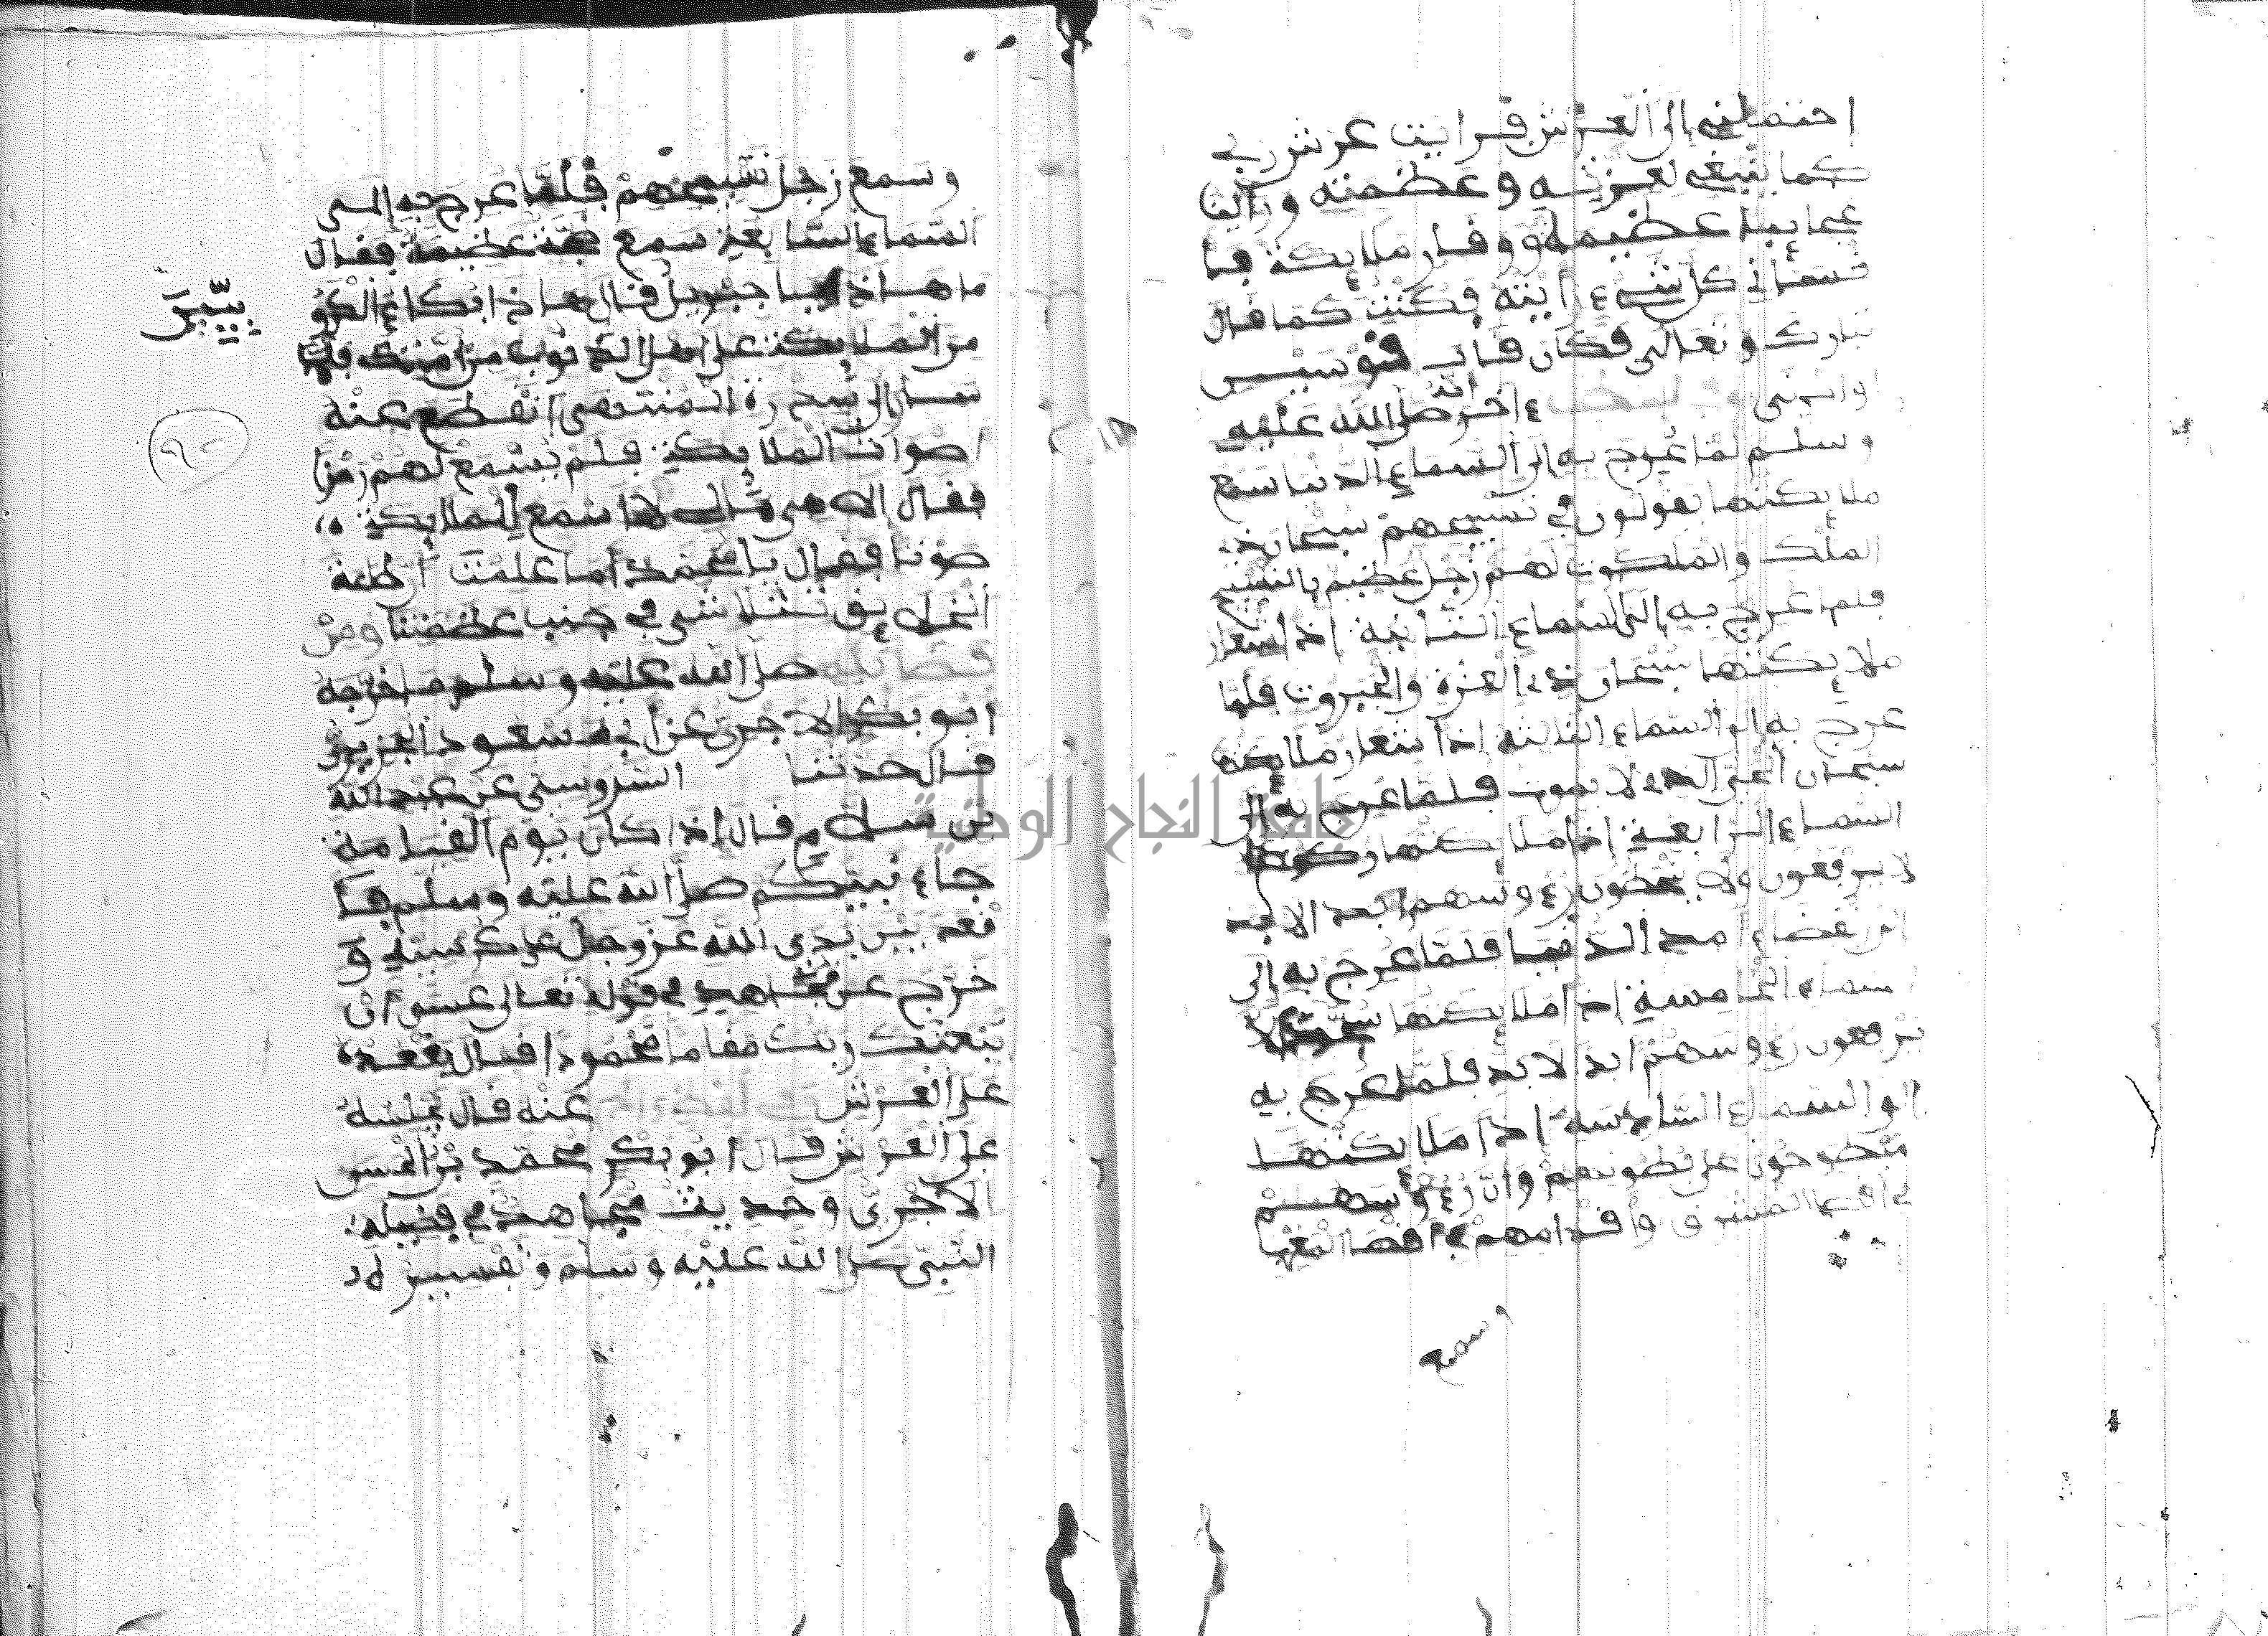 احتضنني إلى العرش فرايت عرش ربي
كما ينبغي لعزته وعظمته ورأيت
عجايبا عظيمة ووقار ملايكة فيا
في كل شيء رأيته فكنت كما قال
تبارك وتعالى فكان قاب قوسين
او ادنى اخر انه صلى الله عليه
وسلم لما عرج به إلى السماء الدنيا سمع
ملايكتها يقولون في تسبيحهم سبحان ذي
الملك والملكوت لهم زجل عظيم بالتسبيح
فلما عرج به إلى السماء الثانية إذا شعار
ملايكتها سبحان ذي العزة والجبروت فلما
عرج به إلى السماء الثالثة اذا شعار ملايكتها
سبحان الحي الذي لا يموت فلما عرج به إلى
السماء الرابعة إذا ملايكتها ركوعا
لا يرفعون ولا يخفضون رءوسهم أبد الابد
امد الدنيا فلما عرج به إلى
السماء الخامسة إذا ملايكتها سجدا لا
يرفعون رءوسهم ابد الابد فلما عرج به
إلى السماء السادسة إذا ملايكتها
مبطوحون على بطونهم وان رءوسهم
في أقصى المشرق وأقدامهم في أقصا المغرب
وسمع
وسمع زجل تسبيحهم فلما عرج به إلى
السماء السابعة سمع ضجة عظيمة فقال
ما هاذا يا جبريل قال هاذا بكاء الكرو
بيين
من الملايكة على اهل الذنوب من أمتك فلما
سار إلى سدرة المنتهى انقطع عنه
أصوات الملايكة فلم يسمع لهم رمزا
فقال الاهي مالي لا اسمع للملايكة
صوتا فقال يا محمد أما علمت أن طاعة
الخلايق تتلاشى في جنب عظمتنا ومن
فضايله صلى الله عليه وسلم ما خرجه
أبو بكر الاجري عن أبي مسعود الجريري
قال حدثنا السدوسي عن عبد الله
بن سلام قال إذا كان يوم القيامة
جاء نبيكم صلى الله عليه وسلم فيا
قعد بين يدي الله عز وجل على كرسيه و
خرج عن مجاهد في قوله تعالى عسى أن
يبعثك ربك مقاما محمودا قال يقعده
على العرش وفي لفظ اخر عنه قال يجلسه
على العرش قال أبو بكر محمد بن الحسين
الاجري وحديث مجاهد في فضيلة
النبي صلى الله عليه وسلم وتفسيره لا
جامعة النجاح الوطنية